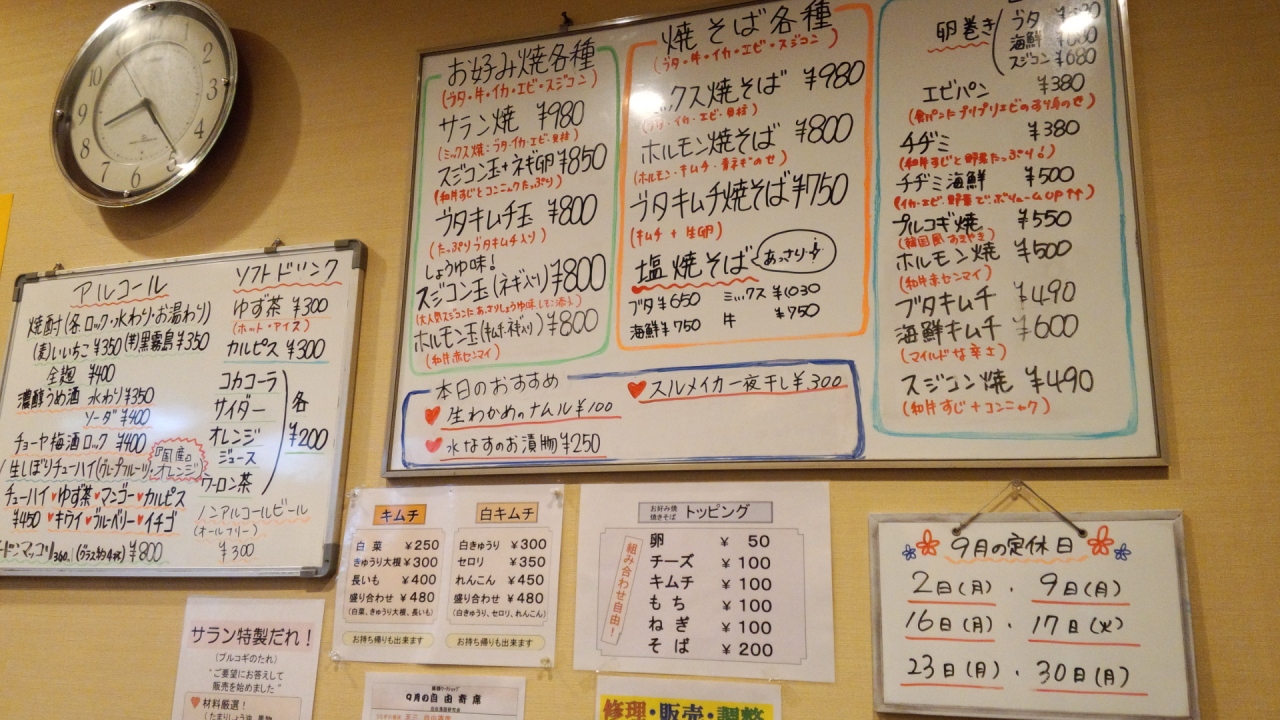 12
1
2
3
4
5
6
7
8
9
10
11
アルコール
焼酎(各ロック・水わり・お湯わり)
(麦)いいちこ ¥350 (芋)黒霧島 ¥350
全麹 ¥400
濃醇うめ酒 水わり ¥350
ソーダ ¥400
チョーヤ梅酒ロック ¥400
生しぼりチューハイ(グレープフルーツ・オレンジ)
『国産』
チューハイ♥ゆず茶♥マンゴー♥カルピス
¥450 ♥キウイ♥ブルーベリー♥イチゴ
¥800
ソフトドリンク
ゆず茶 ¥300
(ホット・アイス)
カルピス ¥300
コカコーラ
サイダー
オレンジ
ジュース
ウーロン茶
各
¥200
ノンアルコールビール
(オールフリー)
¥300
お好み焼各種
(ブタ・牛・イカ・エビ・スジコン)
サラン焼 ¥980
(ミックス焼:ブタ・イカ・エビ・貝柱)
スジコン玉+ネギ卵 ¥850
(和牛すじとコンニャクたっぷり)
ブタキムチ玉 ¥800
(たっぷりブタキムチ入り)
しょうゆ味!
スジコン玉(ネギ入り) ¥800
(大人気スジコンにあさりしょうゆ味レモン添え)
ホルモン玉 ¥800
(和牛赤センマイ)
焼そば各種
(ブタ・牛・イカ・エビ・スジコン)
ミックス焼そば ¥980
(ブタ・イカ・エビ・貝柱)
ホルモン焼そば ¥800
(ホルモン・キムチ・青ネギのせ)
ブタキムチ焼そば ¥750
(キムチ+生卵)
塩焼そば あっさり
ブタ ¥650 ミックス ¥1030
海鮮 ¥750 牛 ¥750
卵巻き
ブタ
海鮮
スジコン ¥680
エビパン ¥380
(食パンにプリプリエビのすり身のせ)
チヂミ ¥380
(和牛すじと野菜たっぷり!)
チヂミ海鮮 ¥500
(イカ・エビ・野菜でボリュームUP↑↑)
プルコギ焼 ¥550
(韓国風すきやき)
ホルモン焼 ¥500
(和牛赤センマイ)
ブタキムチ ¥490
海鮮キムチ ¥600
(マイルドな辛さ)
スジコン焼 ¥490
(和牛すじ+コンニャク)
本日のおすすめ
♥生わかめのナムル ¥100
♥水なすのお漬物 ¥250
♥スルメイカ一夜干し ¥300
キムチ
白菜 ¥250
きゅうり大根 ¥300
長いも ¥400
盛り合わせ ¥480
(白菜、きゅうり大根、長いも)
お持ち帰りも出来ます
白キムチ
白きゅうり ¥300
セロリ ¥350
れんこん ¥450
盛り合わせ ¥480
(白きゅうり、セロリ、れんこん)
お持ち帰りも出来ます
お好み焼
焼きそば
トッピング
組み合わせ自由!
卵 ¥ 50
チーズ ¥ 100
キムチ ¥ 100
もち ¥ 100
ねぎ ¥ 100
そば ¥ 200
9月の定休日
2日(月)・9日(月)
16日(月)・17日(火)
23日(月)・30日(月)
サラン特製だれ!
(プルコギのたれ)
"ご要望にお答えして
販売を始めました"
♥材料厳選!
9月の自由寄席
修理・販売・調整